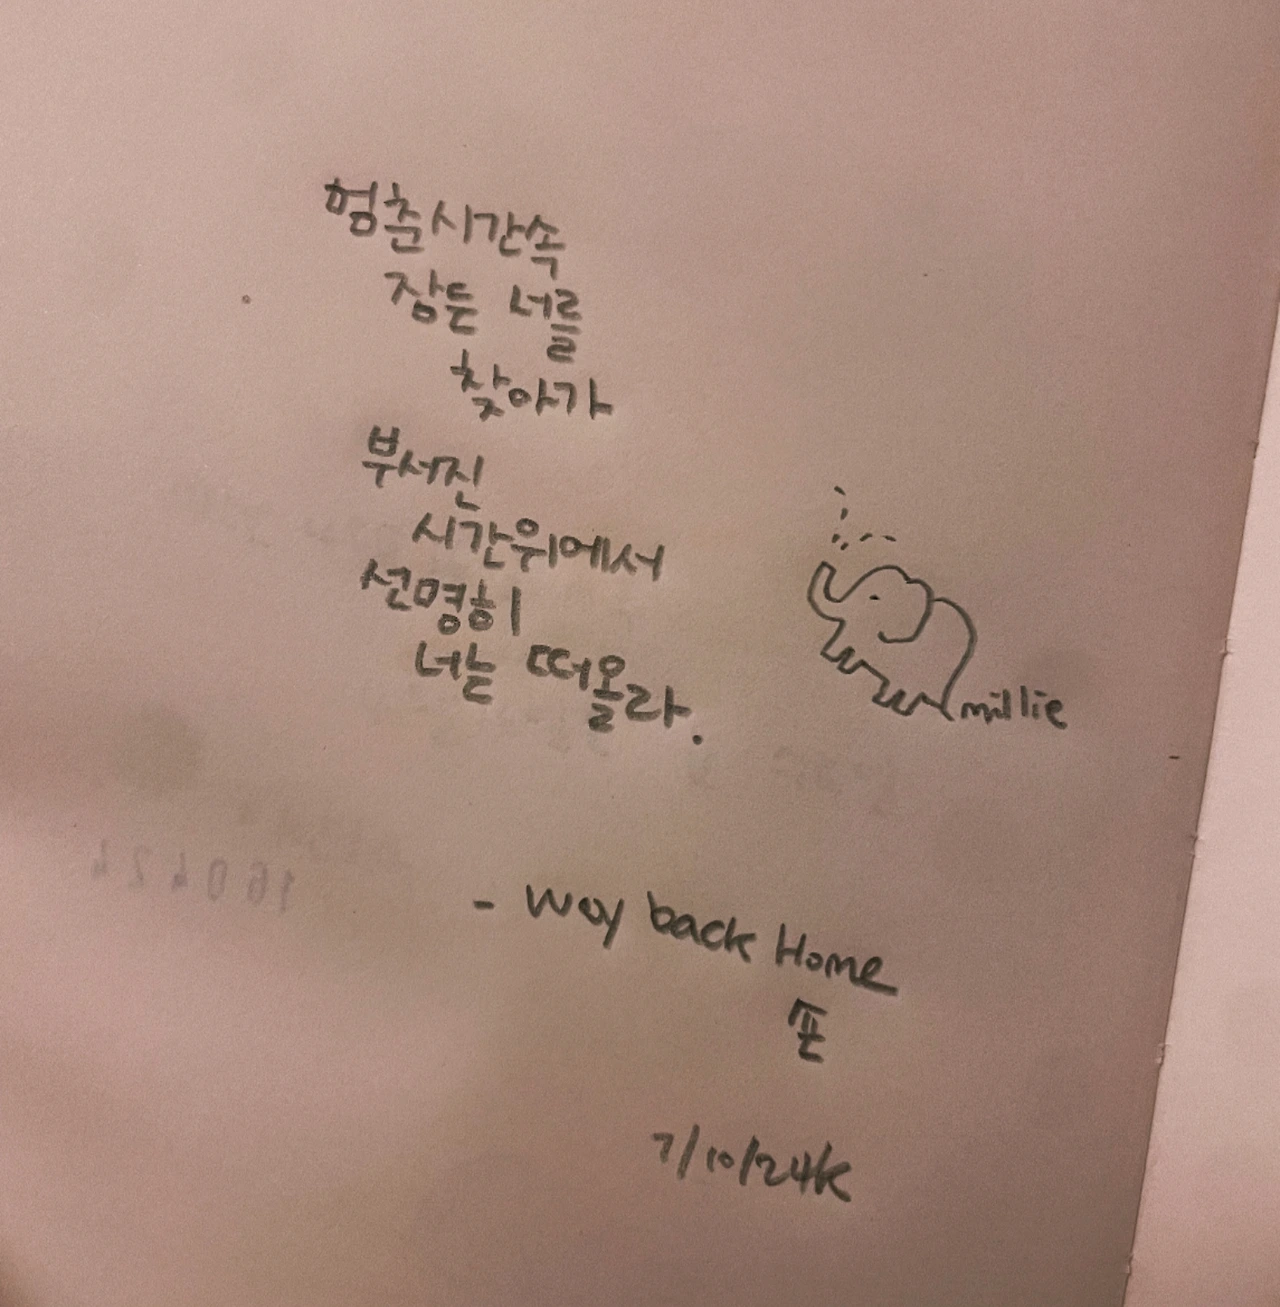 멈춘시간속
잠든 너를
찾아가
부서진
시간위에서
선명히
너는 떠올라.
millie
- Way back Home
숀
7/10/24k
160424